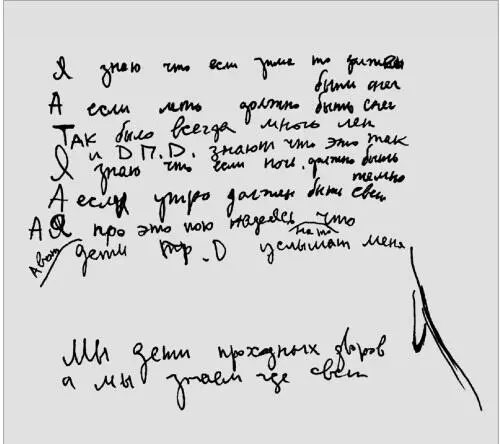 Я знаю что если зима то должен
быть снег
А если лето должно быть снег
Так было всегда много лет
и Д П.Д. знают что это так
Я знаю что если ночь должно быть
темно
А если утро должен быть свет
А Я про это пою надеясь что
на то
Авось дети пр. D услышат меня
Мы дети проходных дворов
а мы знаем где свет